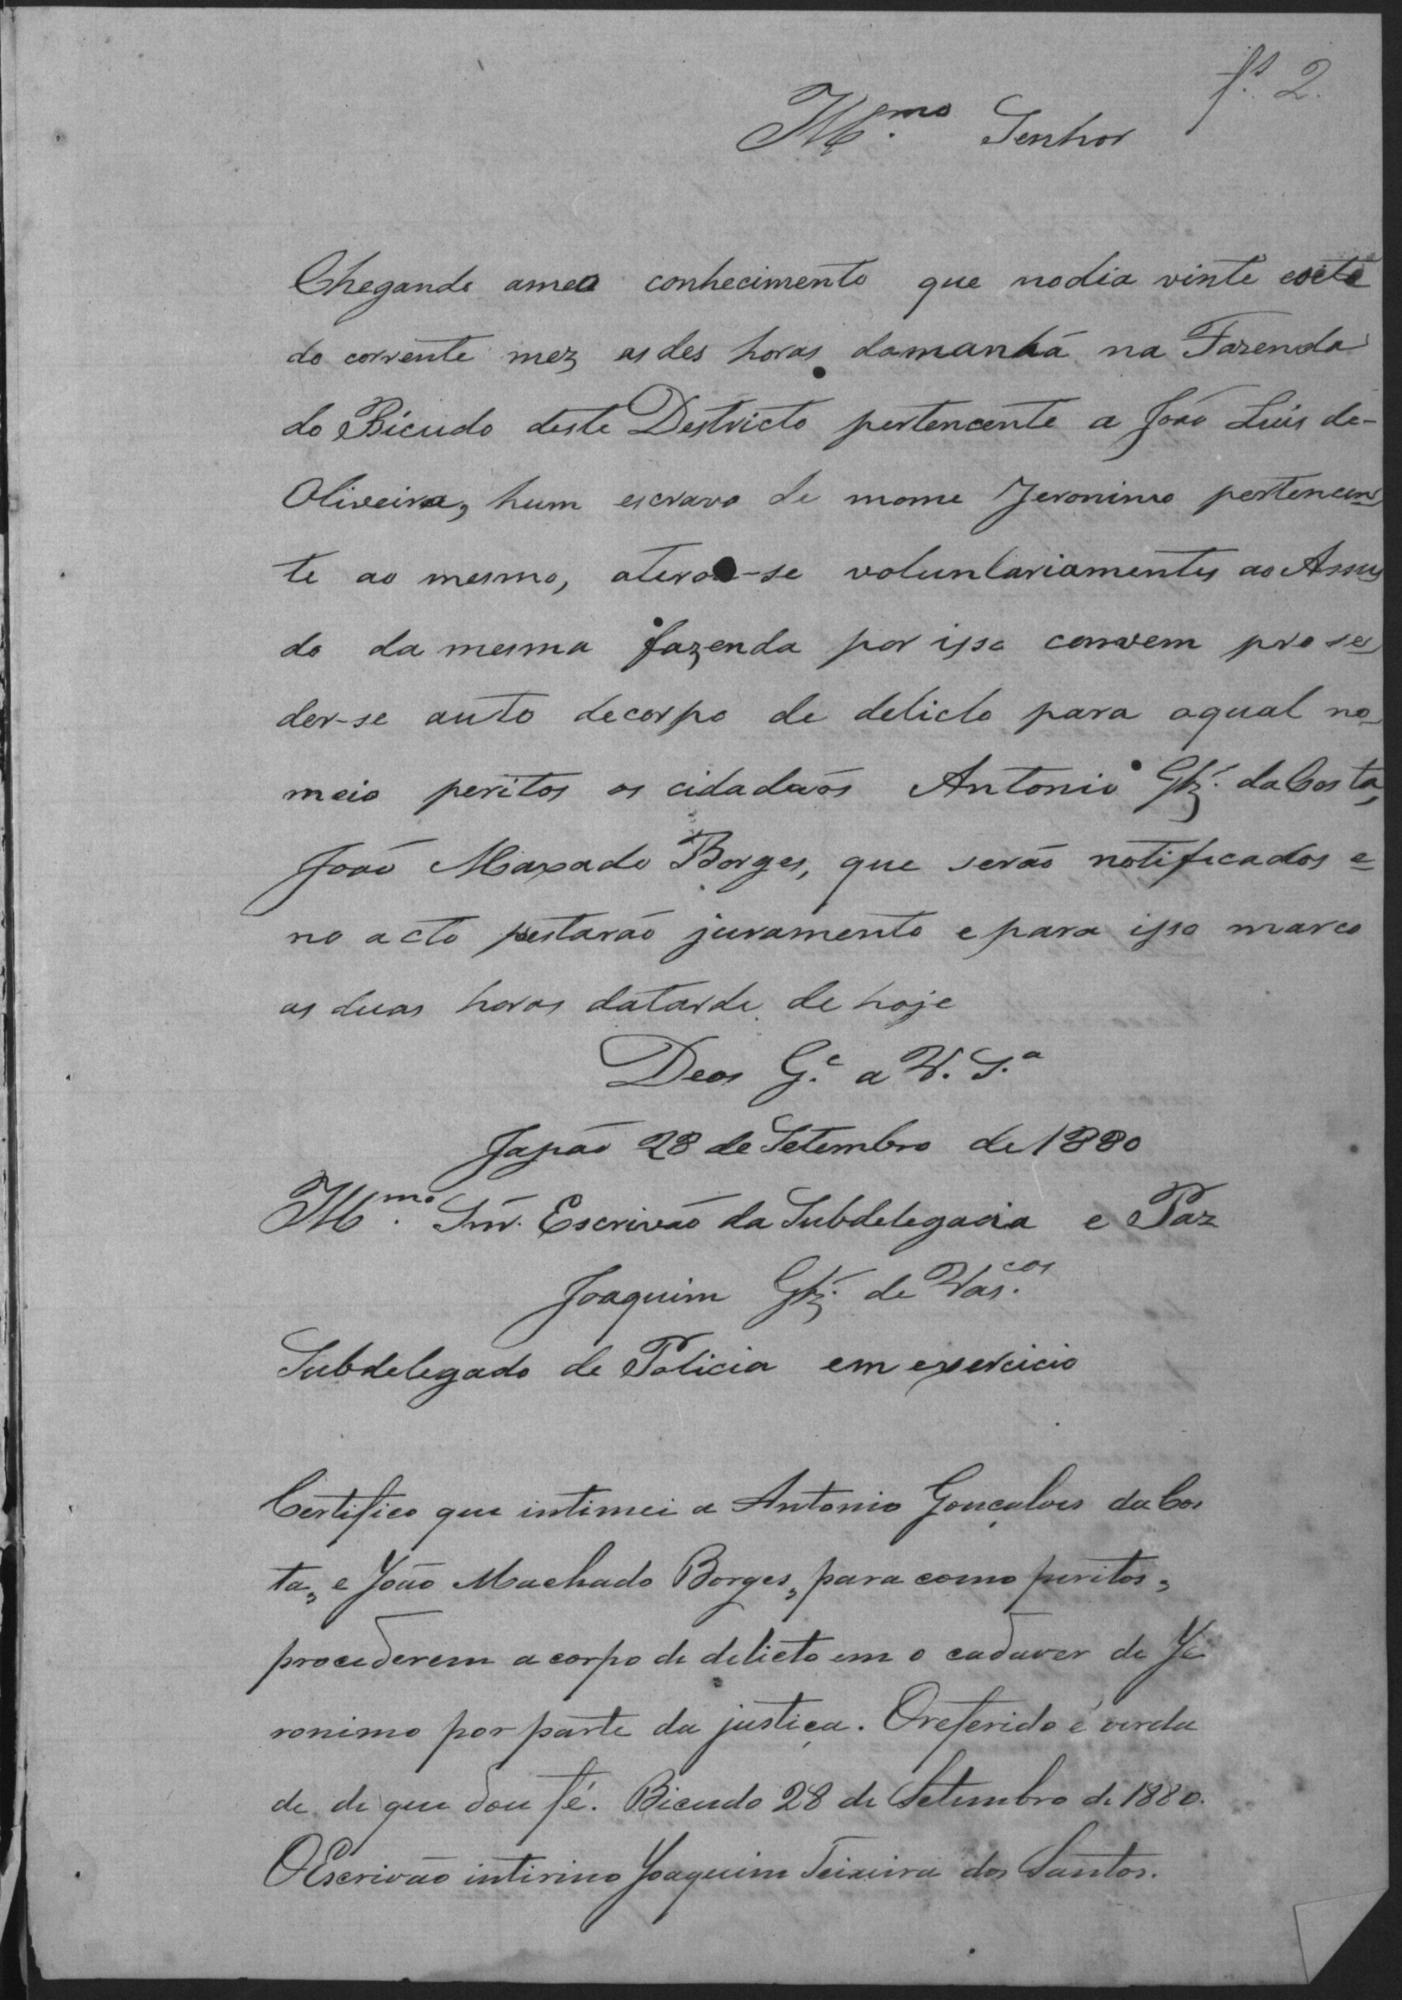 fs. 2.
Illmo. Senhor
Chegando ameo conhecimento que nodia vinte eoito
do corrente mez asdes horas damanhã na Fazenda
do Bicudo deste Destricto pertencente a João Luis de-
Oliveira, hum escravo de nome Jeronimo pertencen-
te ao mesmo, aterou-se voluntariamentes ao Assu
do da mesma fazenda por isso convem pro se
der-se auto decorpo de delicto para aqual no-
meio peritos os cidadaõs Antonio Glz. da Costa,
João Maxado Borges, que serão notificados e
no acto pestarão juramento e para isso marco
as duas horas datarde de hoje
Deos Ge. a V. Sa.
Japão 28 de Setembro de 1880
Illmo. Snr. Escrivão da Subdelegacia e Paz
Joaquim Glz. de Vascos.
Subdelegado de Policia em exercicio
Certifico que intimei a Antonio Gonçalves da Cos
ta, e João Machado Borges, para como peritos,
procederem a corpo de delicto em o cadaver de Je
ronimo por parte da justiça. O referido é verda
de de que dou fé. Bicudo 28 de Setembro de 1880.
O Escrivão intirino Joaquim Teixeira dos Santos.